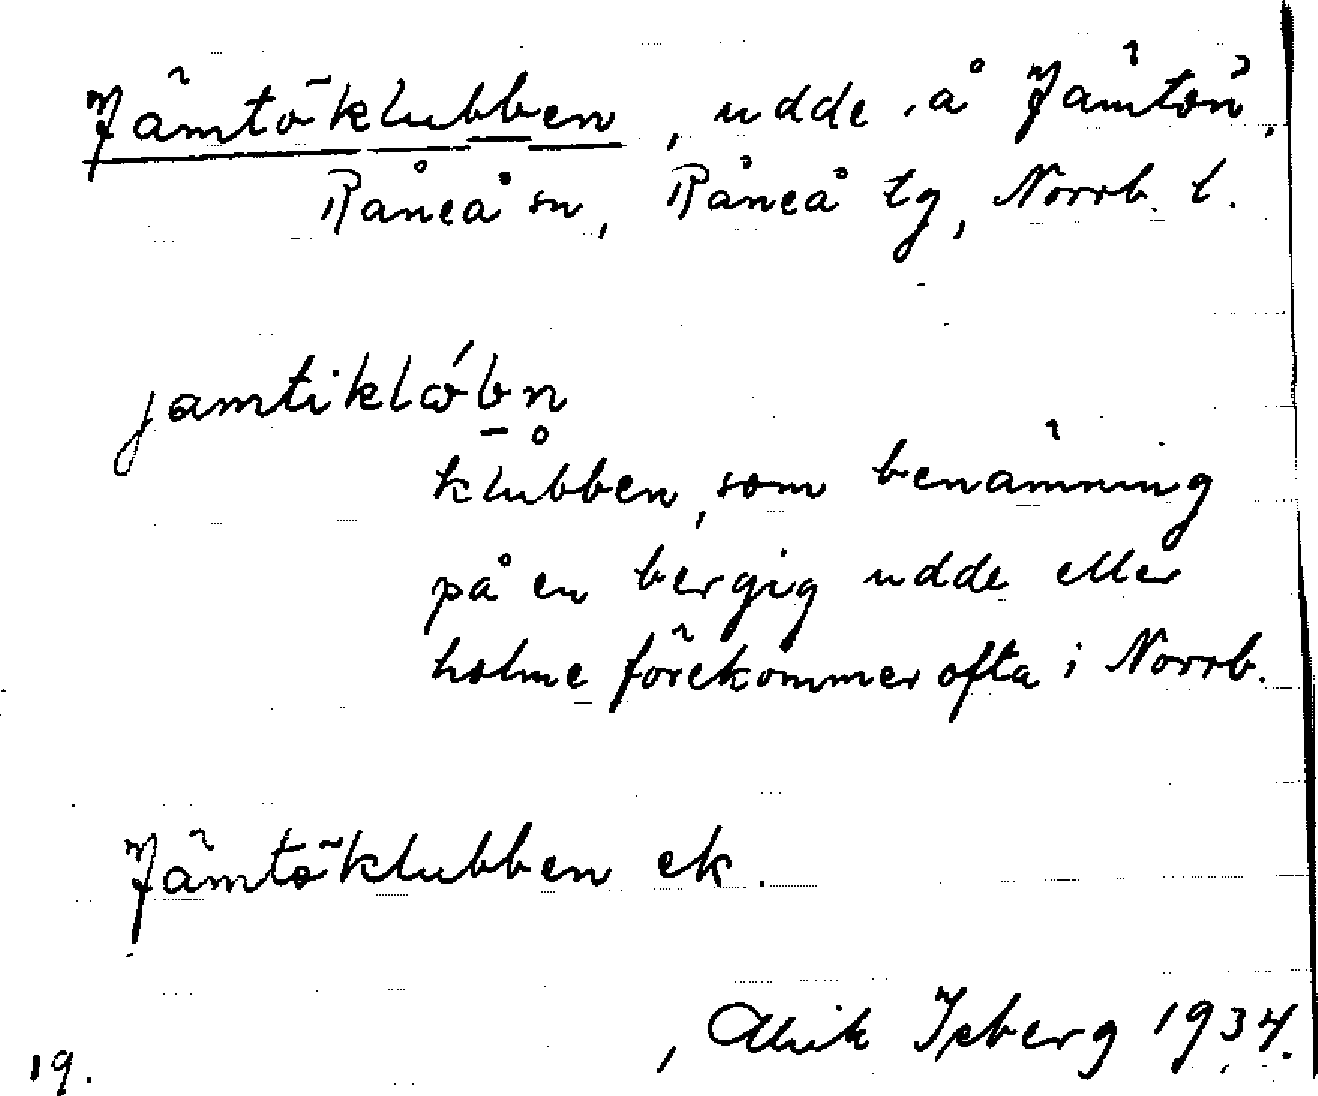 Jämtöklubben, udde å Jämtön,
Råneå sn, Råneå tg, Norrb. l.
jamtiklω´bn
klubben, som benämning
på en bergig udde eller
holme förekommer ofta i Norrb.
Jämtöklubben ek.
Isberg 1934.
19.